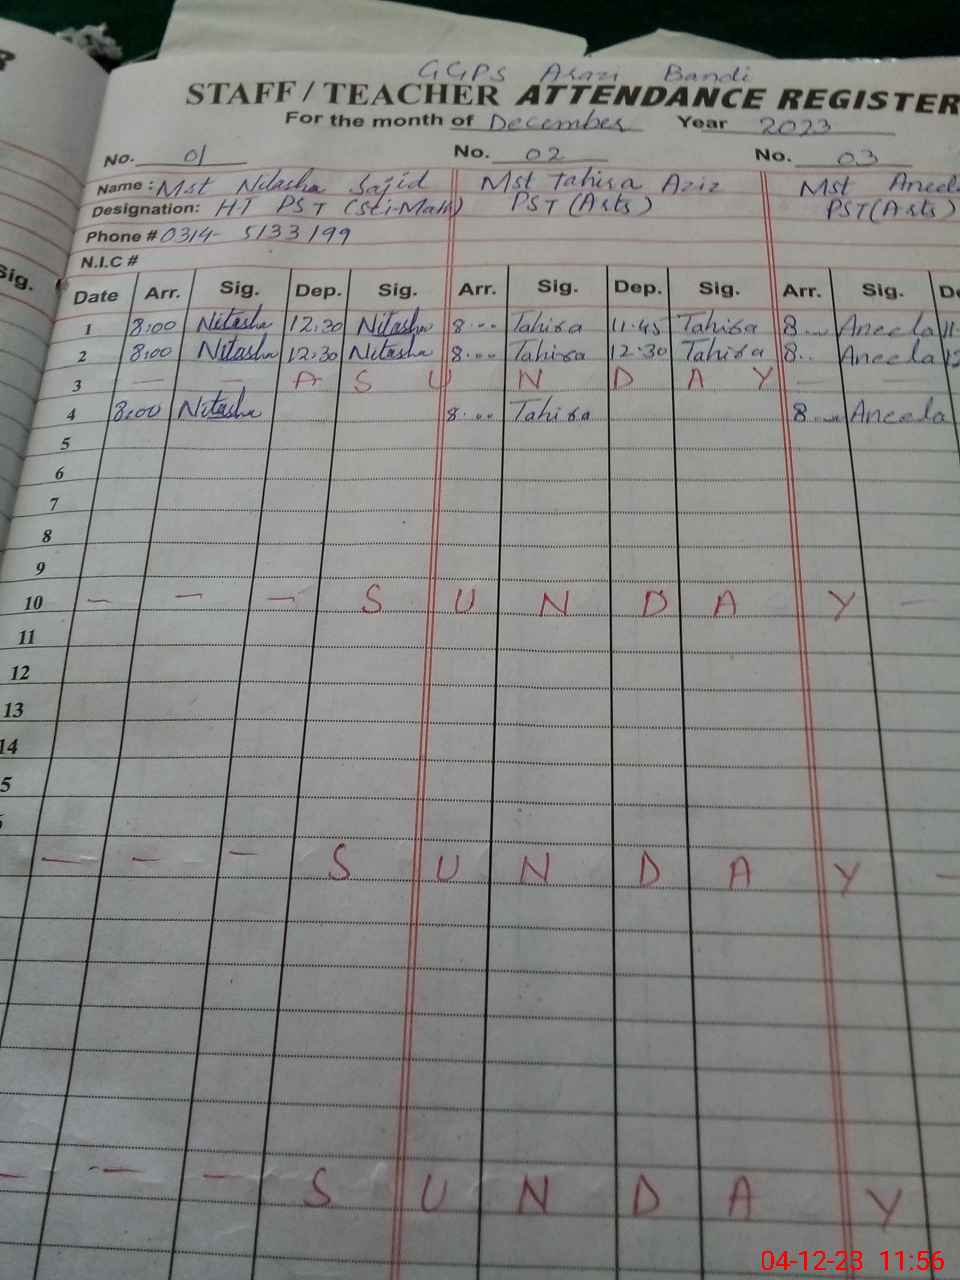 GGPS Arazi Bandi
STAFF / TEACHER ATTENDANCE REGISTER
For the month of December Year 2023
No. 01 No. 02 No. 03
Name : Mst Nitasha Sajid Mst Tahira Aziz Mst
Designation: HT PST (Sci-Math) PST (Arts) PST (Arts)
Phone # 0314- 5133199
N.I.C #
Sig.
Date Arr. Sig. Dep. Sig. Arr. Sig. Dep. Sig. Arr. Sig.
1 8:00 Nitasha 12:30 Nitasha 8 Tahira 11:45 Tahira 8 Aneela
2 8:00 Nitasha 12:30 Nitasha 8 Tahira 12:30 Tahira 8 Aneela
3 — — A S U N D A Y — —
4 8:00 Nitasha 8 Tahira 8 Aneela
5
6
7
8
9
10 — — — S U N D A Y —
11
12
13
14
— — — S U N D A Y —
— — — S U N D A Y
04-12-23 11:56